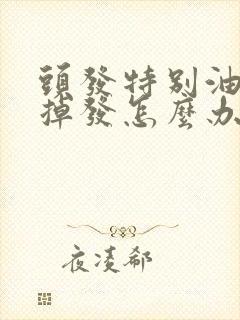 頭發特別油
掉發怎麼办
夜凌郗